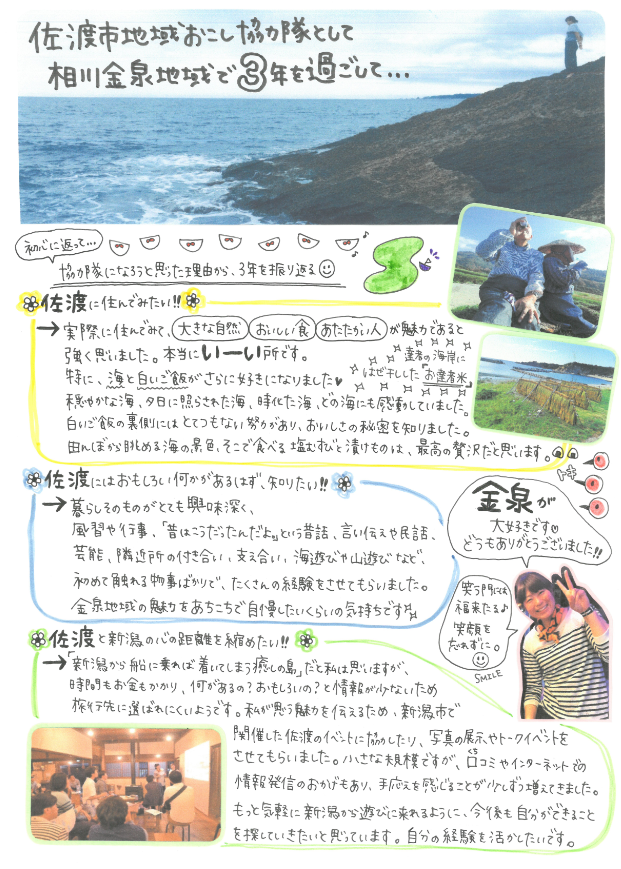 佐渡市地域おこし協力隊として
相川金泉地域で3年を過ごして…
初心に返って…
協力隊になろうと思った理由から、3年を振り返る
佐渡に住んでみたい!!
→実際に住んでみて、大きな自然 おいしい食 あたたかい人が魅力であると
強く思いました。本当にいーい所です。
特に、海と白いご飯がさらに好きになりました♥
達者の海岸に
はぜ干しした「お達者米」
穏やかな海、夕日に照らされた海、時化た海、どの海にも感動していました。
白いご飯の裏側にはとてつもない努力があり、おいしさの秘密を知りました。
田んぼから眺める海の景色、そこで食べる塩むすびと漬けものは、最高の贅沢だと思います。
トキ
佐渡にはおもしろい何かがあるはず、知りたい!!
→暮らしそのものがとても興味深く、
風習や行事、「昔はこうだったんだよ」という昔話、言い伝えや民話、
芸能、隣近所の付き合い、支え合い、海遊びや山遊びなど、
初めて触れる物事ばかりで、たくさんの経験をさせてもらいました。
金泉地域の魅力をあちこちで自慢したいくらいの気持ちです
金泉が
大好きです♡
どうもありがとうございました!!
笑う門には
福来たる♪
笑顔を
忘れずに。
SMILE
佐渡と新潟の心の距離を縮めたい!!
→「新潟から船に乗れば着いてしまう癒しの島」だと私は思いますが、
時間もお金もかかり、何があるの?おもしろいの?と情報が少ないため
旅行先に選ばれにくいようです。私が思う魅力を伝えるため、新潟市で
開催した佐渡のイベントに協力したり、写真の展示やトークイベントを
させてもらいました。小さな規模ですが、口コミやインターネットでの
くち
情報発信のおかげもあり、手応えを感じることが少しずつ増えてきました。
もっと気軽に新潟から遊びに来れるように、今後も自分ができること
を探していきたいと思っています。自分の経験を活かしたいです。